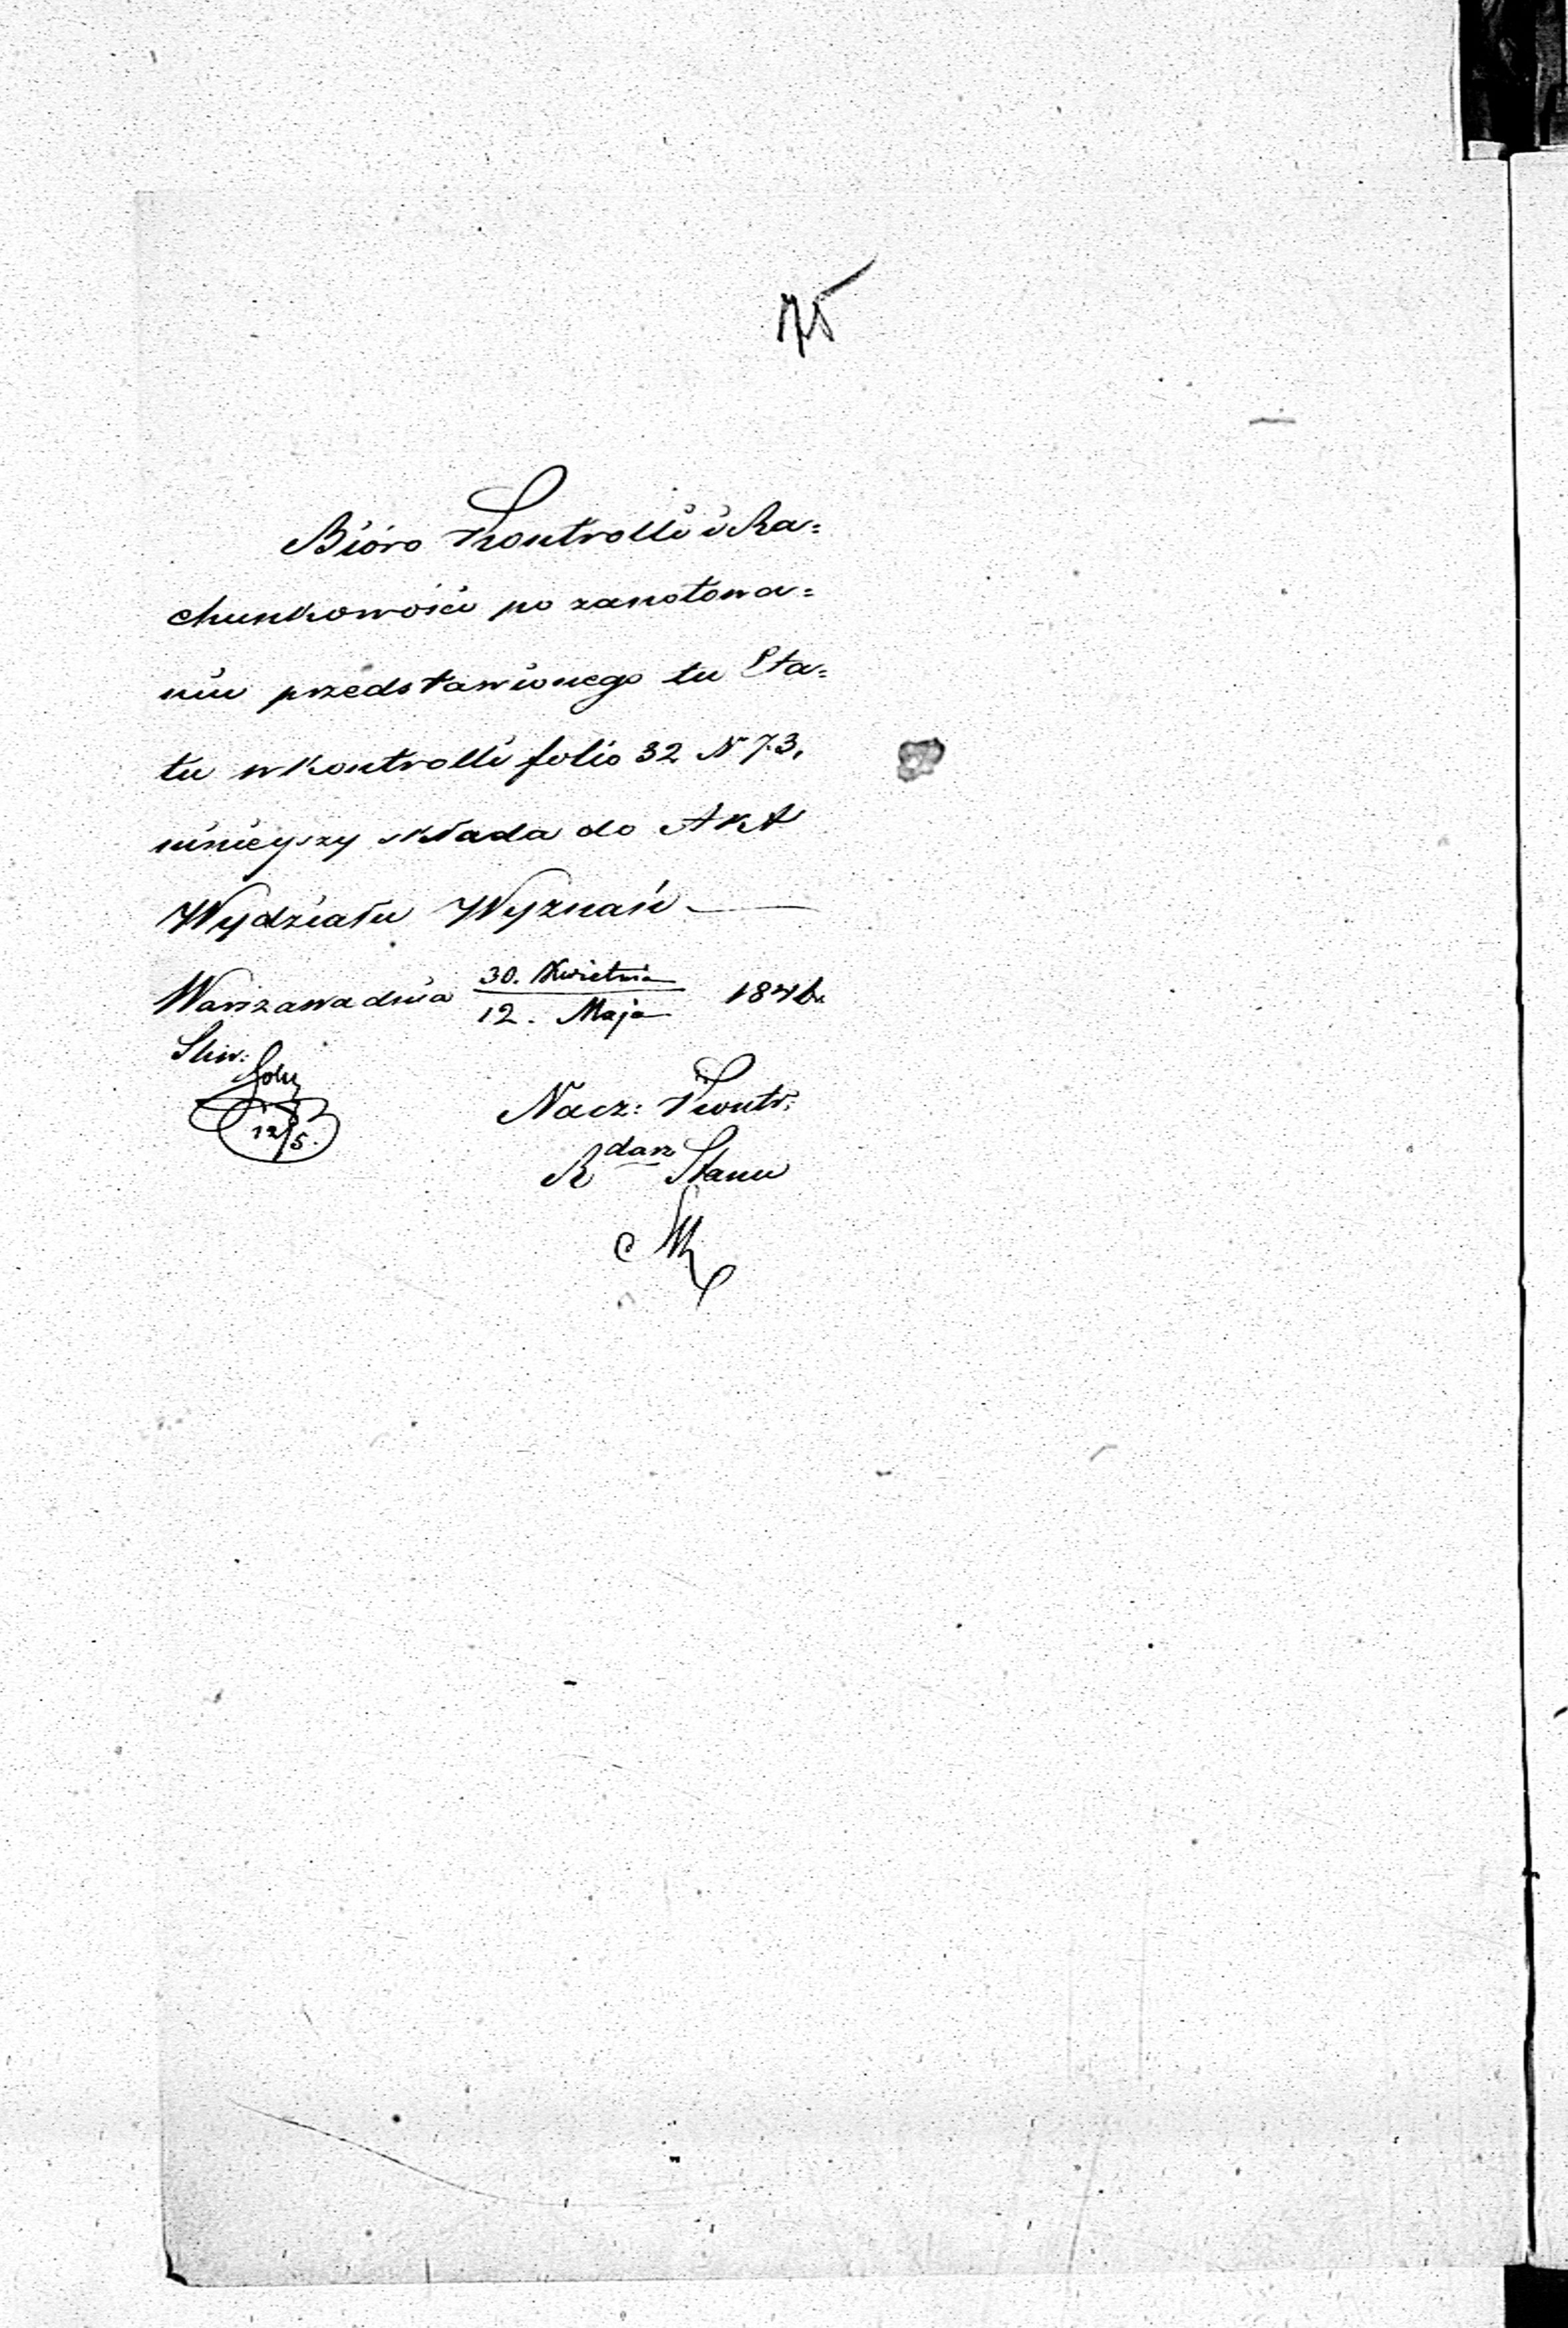 75
Bióro Kontrolli i Ra=
chunkowości po zanotowa=
niu przedstawionego tu Eta=
tu w Kontrolli folio 32 N 73,
ninieyszy składa do Akt
Wydziału Wyznań —
Warszawa dnia 30. Kwietnia / 12. Maja 1846.
12/5.
Nacz: Kontr:
Stanu